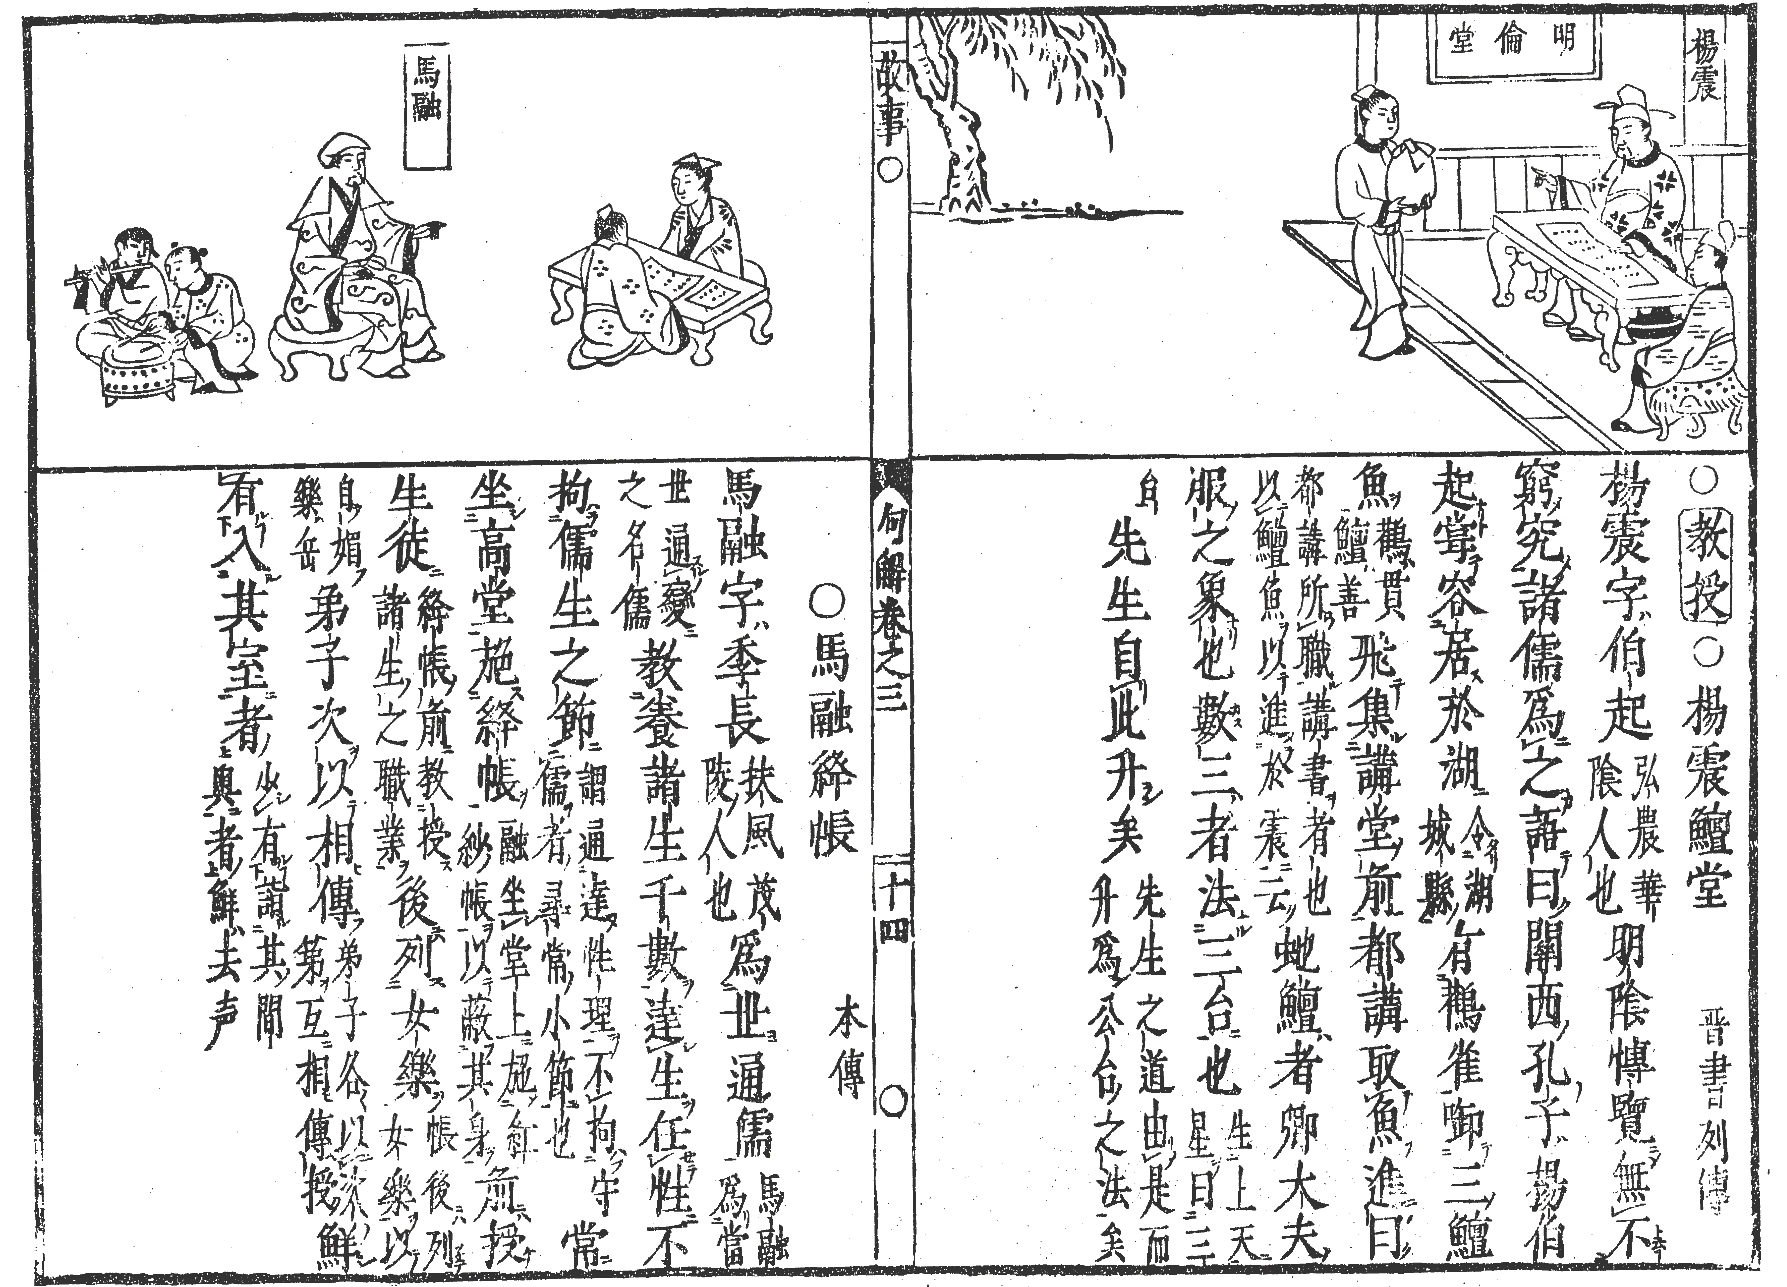 楊震
明倫堂
○教授○楊震鱣堂 晋書列傳
楊震字伯起弘農華陰人也明隂慱覽無不
窮究諸儒爲之語曰關西孔子楊伯
起嘗客居於湖今湖城縣有鸛雀啣三鱣
魚鸛貫鱣善飛集講堂前都講取魚進曰
都講所職講書者也以鱣魚以進於震云蛇鱣者卿大夫
服之象也數三者法三台也生上天星曰三
台先生自此升矣先生之道由是而升爲公台之法矣
故事○
句解卷之三
十四
○
馬融
○馬融絳帳 本傳
馬融字季長扶風茂陵人也爲世通儒馬融爲當
世通變之名儒教養諸生千數達生任性不
拘儒生之節謂通達性理不拘守儒者尋常小節也常
坐高堂施絳帳融坐堂上施紅紗帳以蔽其身前授
生徒絳帳前教授諸生之職業後列女樂帳後列女樂以
自媚樂缶弟子次以相傳弟子各以次第互相傳授鮮
有入其室者少有詣其間與者鮮去声